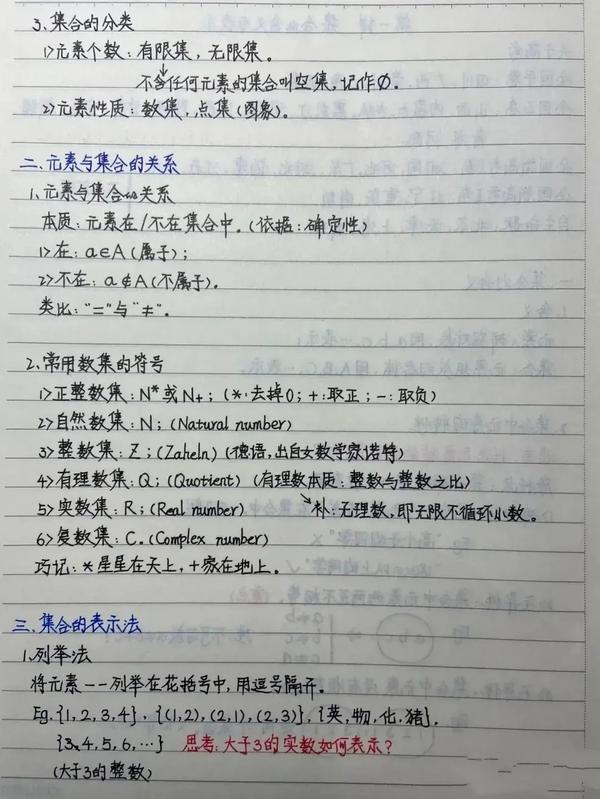 3、集合的分类
1>元素个数：有限集，无限集。
不含任何元素的集合叫空集，记作∅.
2>元素性质：数集，点集(图象)。
二、元素与集合的关系
1、元素与集合的关系
本质：元素在/不在集合中。(依据：确定性)
1>在：a∈A(属于)；
2>不在：a∉A(不属于)。
类比："="与"≠"。
2、常用数集的符号
1>正整数集：N*或N+；(*：去掉0；+：取正；-：取负)
2>自然数集：N；(Natural number)
3>整数集：Z；(Zaheln)(德语，出自女数学家诺特)
4>有理数集：Q；(Quotient)(有理数本质：整数与整数之比)
5>实数集：R；(Real number) 补：无理数，即无限不循环小数。
6>复数集：C。(Complex number)
巧记：*星星在天上，+家在地上。
三、集合的表示法
1、列举法
将元素一一列举在花括号中，用逗号隔开。
Eg.{1,2,3,4}，{(1,2),(2,1),(2,3)}，{英,物,化,猪}.
{3,4,5,6,…} 思考：大于3的实数如何表示？
(大于3的整数)